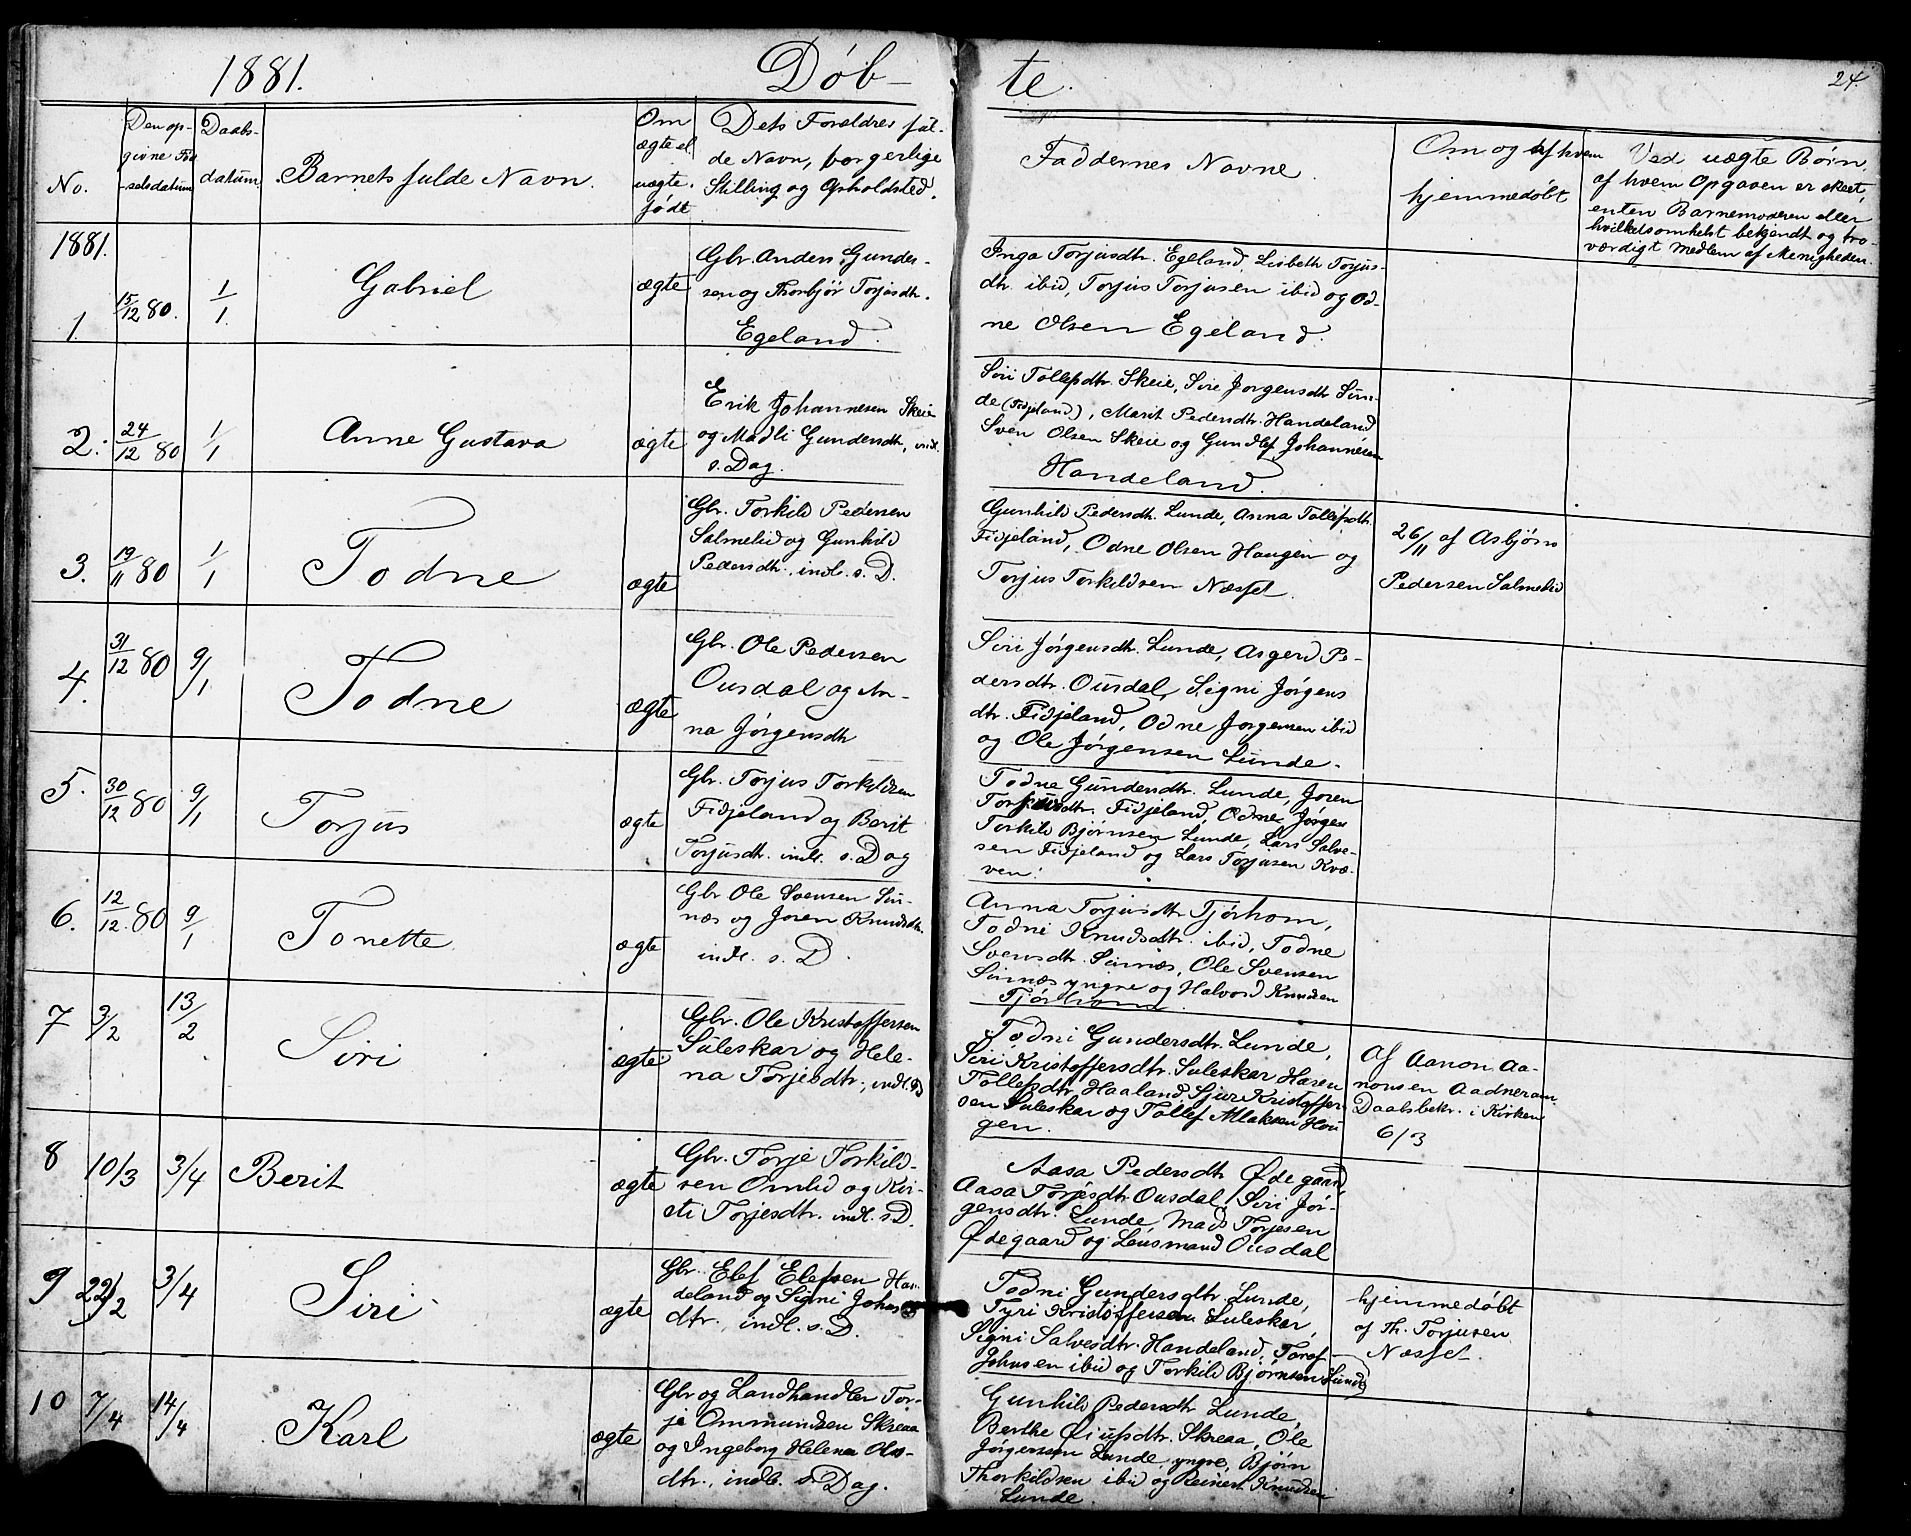 1881. Døb-
te.
24.
No.
Den op-
givne Fød
-selsdatum
Daabs-
datum
Barnets fulde Navn.
Om
ægte el.
uægte.
født
Dets Forældres ful-
de Navn, borgerlige
Stilling og Opholdsted.
Faddernes Navne.
Om og af hvem
hjemmedøbt
Ved uægte Børn,
af hvem Opgaven er skeet,
enten Barnemoderen eller
hvilketsomhelst bekjendt og tro-
værdigt Medlem af Menigheden.
1881.
1.
15/12 80.
1/1.
Gabriel
ægte
Gbr. Anders Gunder-
sen og Thorbjør Torjusdtr.
Egeland.
Inga Torjusdtr. Egeland, Lisbeth Torjus-
dtr. ibid, Torjus Torjusen ibid og Od-
ne Olsen Egeland.
2.
24/12 80
1/1
Anne Gustava
ægte
Erik Johannesen Skeie
og Madli Gundersdtr., indl.
s. Dag.
Siri Tollefsdtr. Skeie, Sire Jørgensdtr. Sun-
de (Fidjeland), Marit Pedersdtr. Handeland
Sven Olsen Skeie og Gundlef Johannesen
Handeland.
3.
19/11 80
1/1
Todne
ægte
Gbr. Torkild Pedersen
Salmelid og Gunhild
Pedersdtr., indl. s. D.
Gunhild Pedersdtr. Lunde, Anna Tollefsdtr.
Fidjeland, Odne Olsen Haugen og
Torjus Torkildsen Næsset.
26/11 af Asbjørn
Pedersen Salmelid
4.
31/12 80
9/1
Todne
ægte
Gbr. Ole Pedersen
Ousdal og An-
na Jørgensdtr
Siri Jørgensdtr. Lunde, Asgerd Pe-
dersdtr. Ousdal, Signi Jørgens
dtr. Fidjeland, Odne Jørgensen ibid
og Ole Jørgensen Lunde.
5.
30/12 80
9/1
Torjus
ægte
Gbr. Torjus Torkildsen
Fidjeland og Berit
Torjusdtr. indl. s. Dag
Todne Gundersdtr. Lunde, Joren
Torjusdtr. Fidjeland, Odne Jørgen
Torkild Bjørnsen Lunde, Lars Salve-
sen Fidjeland og Lars Torjusen Kvæ-
ven.
6.
12/12. 80
9/1
Tonette
ægte
Gbr Ole Svensen Sin-
næs og Joren Knudsdtr.
indl. s. D.
Anna Torjusdtr Tjørhom,
Todni Knudsdtr. ibid, Todne
Svensdtr. Sinnæs, Ole Svensen
Sinnæs yngre og Halvord Knudsen
Tjørhom
7
3/2
13/2
Siri
ægte
Gbr. Ole Kristoffersen
Suleskar og Hele-
na Torjesdtr., indl. s D
Todni Gundersdtr. Lunde,
Siri Kristoffersdtr. Suleskar Hæsen
Tollefsdtr. Haaland, Sjur Kristoffer-
sen Suleskar og Tollef Aslaksen Hou
gen.
Af Aanon Aa-
nonsen Aadneram.
Daabsbekr. i Kirken
6/3
8
10/3
3/4
Berit
ægte
Gbr. Torje Torkild-
sen Omlid og Kir-
sti Torjesdtr. indl. s. D.
Aasa Pedersdtr Ødegaard,
Aasa Torjesdtr. Ousdal, Siri Jør-
gensdtr. Lunde, Mads Torjesen
Ødegaard og Lensmand Ousdal
9
22/2
3/4
Siri
ægte
Gbr. Elef Elefsen Han-
deland og Signi Johans
dtr., indl. s. D.
Todni Gundersdtr. Lunde,
Tyri Kristoffersen Suleskar,
Signi Salvesdtr. Handeland, Toref
Johnsen ibid og Torkild Bjørnsen Lunde
hjemmedøbt
af Th. Torjusen
Næsset.
10
7/4
14/4
Karl
ægte
Gbr og Landhandler Tor-
je Ommundsen Skreaa
og Ingeborg Helena Ols-
dtr., indl. s. Dag.
Gunhild Pedersdtr Lunde,
Berthe Skreaa, Ole
Jørgensen Lunde yngre, Bjørn
Thorkildsen ibid og Reiner Knudsen
Lunde.